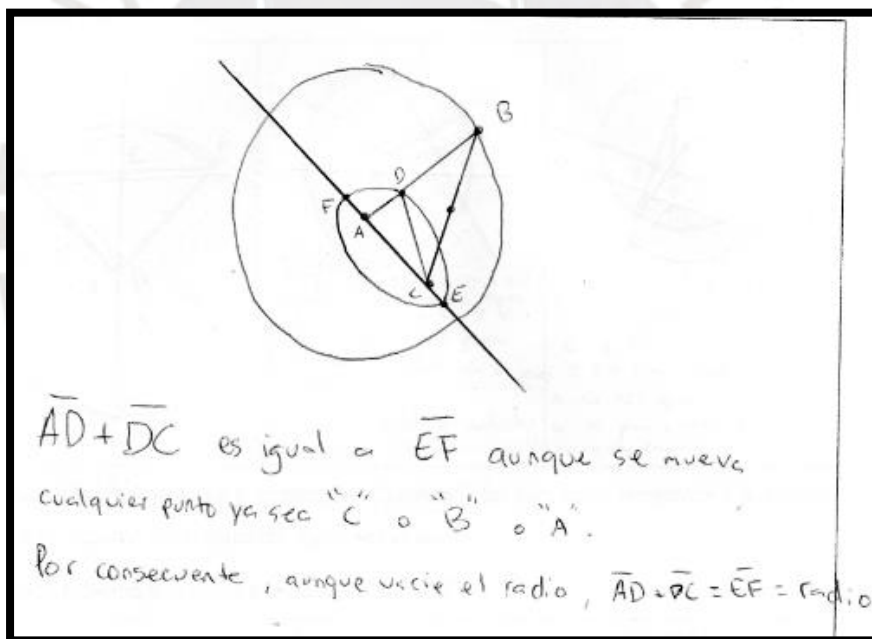 B
D
F
A
C
E
AD + DC es igual a EF aunque se mueva
cualquier punto ya sea "C" o "B" o "A".
Por consecuente, aunque varie el radio, AD + DC = EF = radio